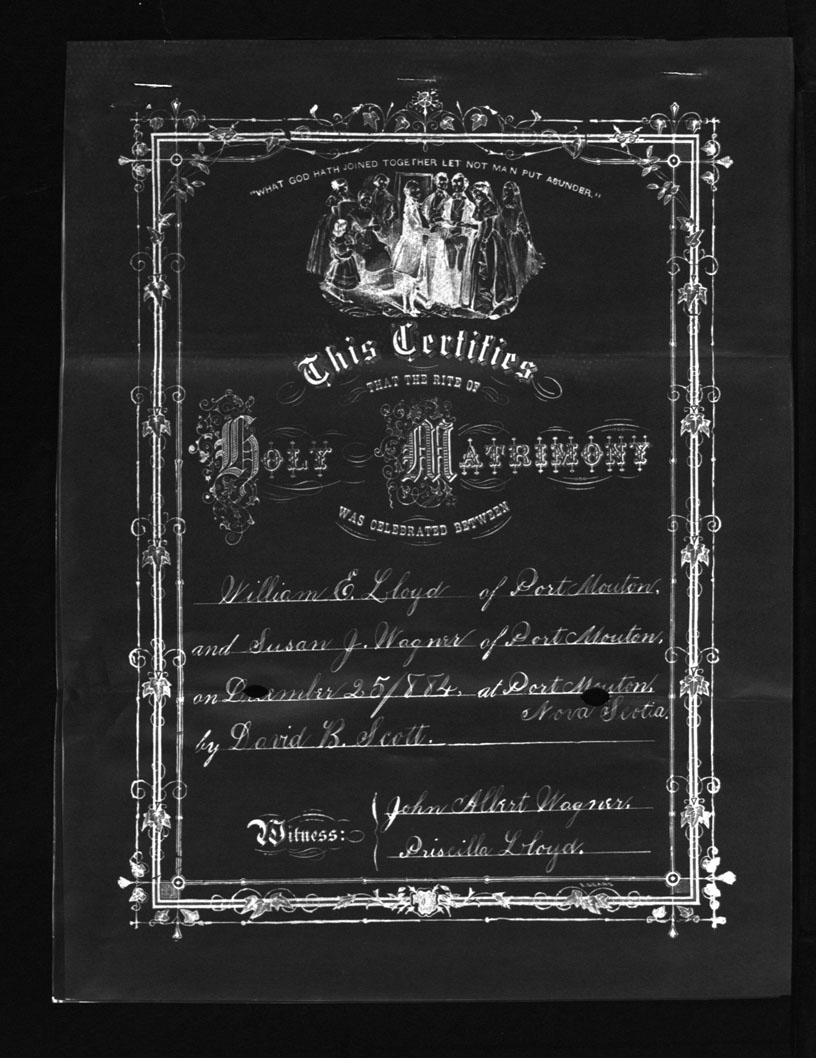 "WHAT GOD HATH JOINED TOGETHER LET NOT MAN PUT ASUNDER."
This Certifies
THAT THE RITE OF
HOLY MATRIMONY
WAS CELEBRATED BETWEEN
William E. Lloyd of Port Mouton,
and Susan J. Wagner of Port Mouton,
on December 25/884. at Port Mouton,
Nova Scotia.
by David B. Scott.
Witness:
John Albert Wagner.
Priscilla Lloyd.